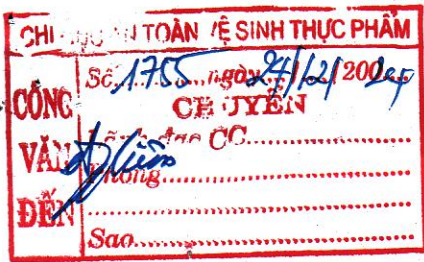 CHI CỤC AN TOÀN VỆ SINH THỰC PHẨM
CÔNG VĂN ĐẾN
Số 1755 ngày 24/12/200
CHUYỂN
Lãnh đạo CC
Phòng
Sao